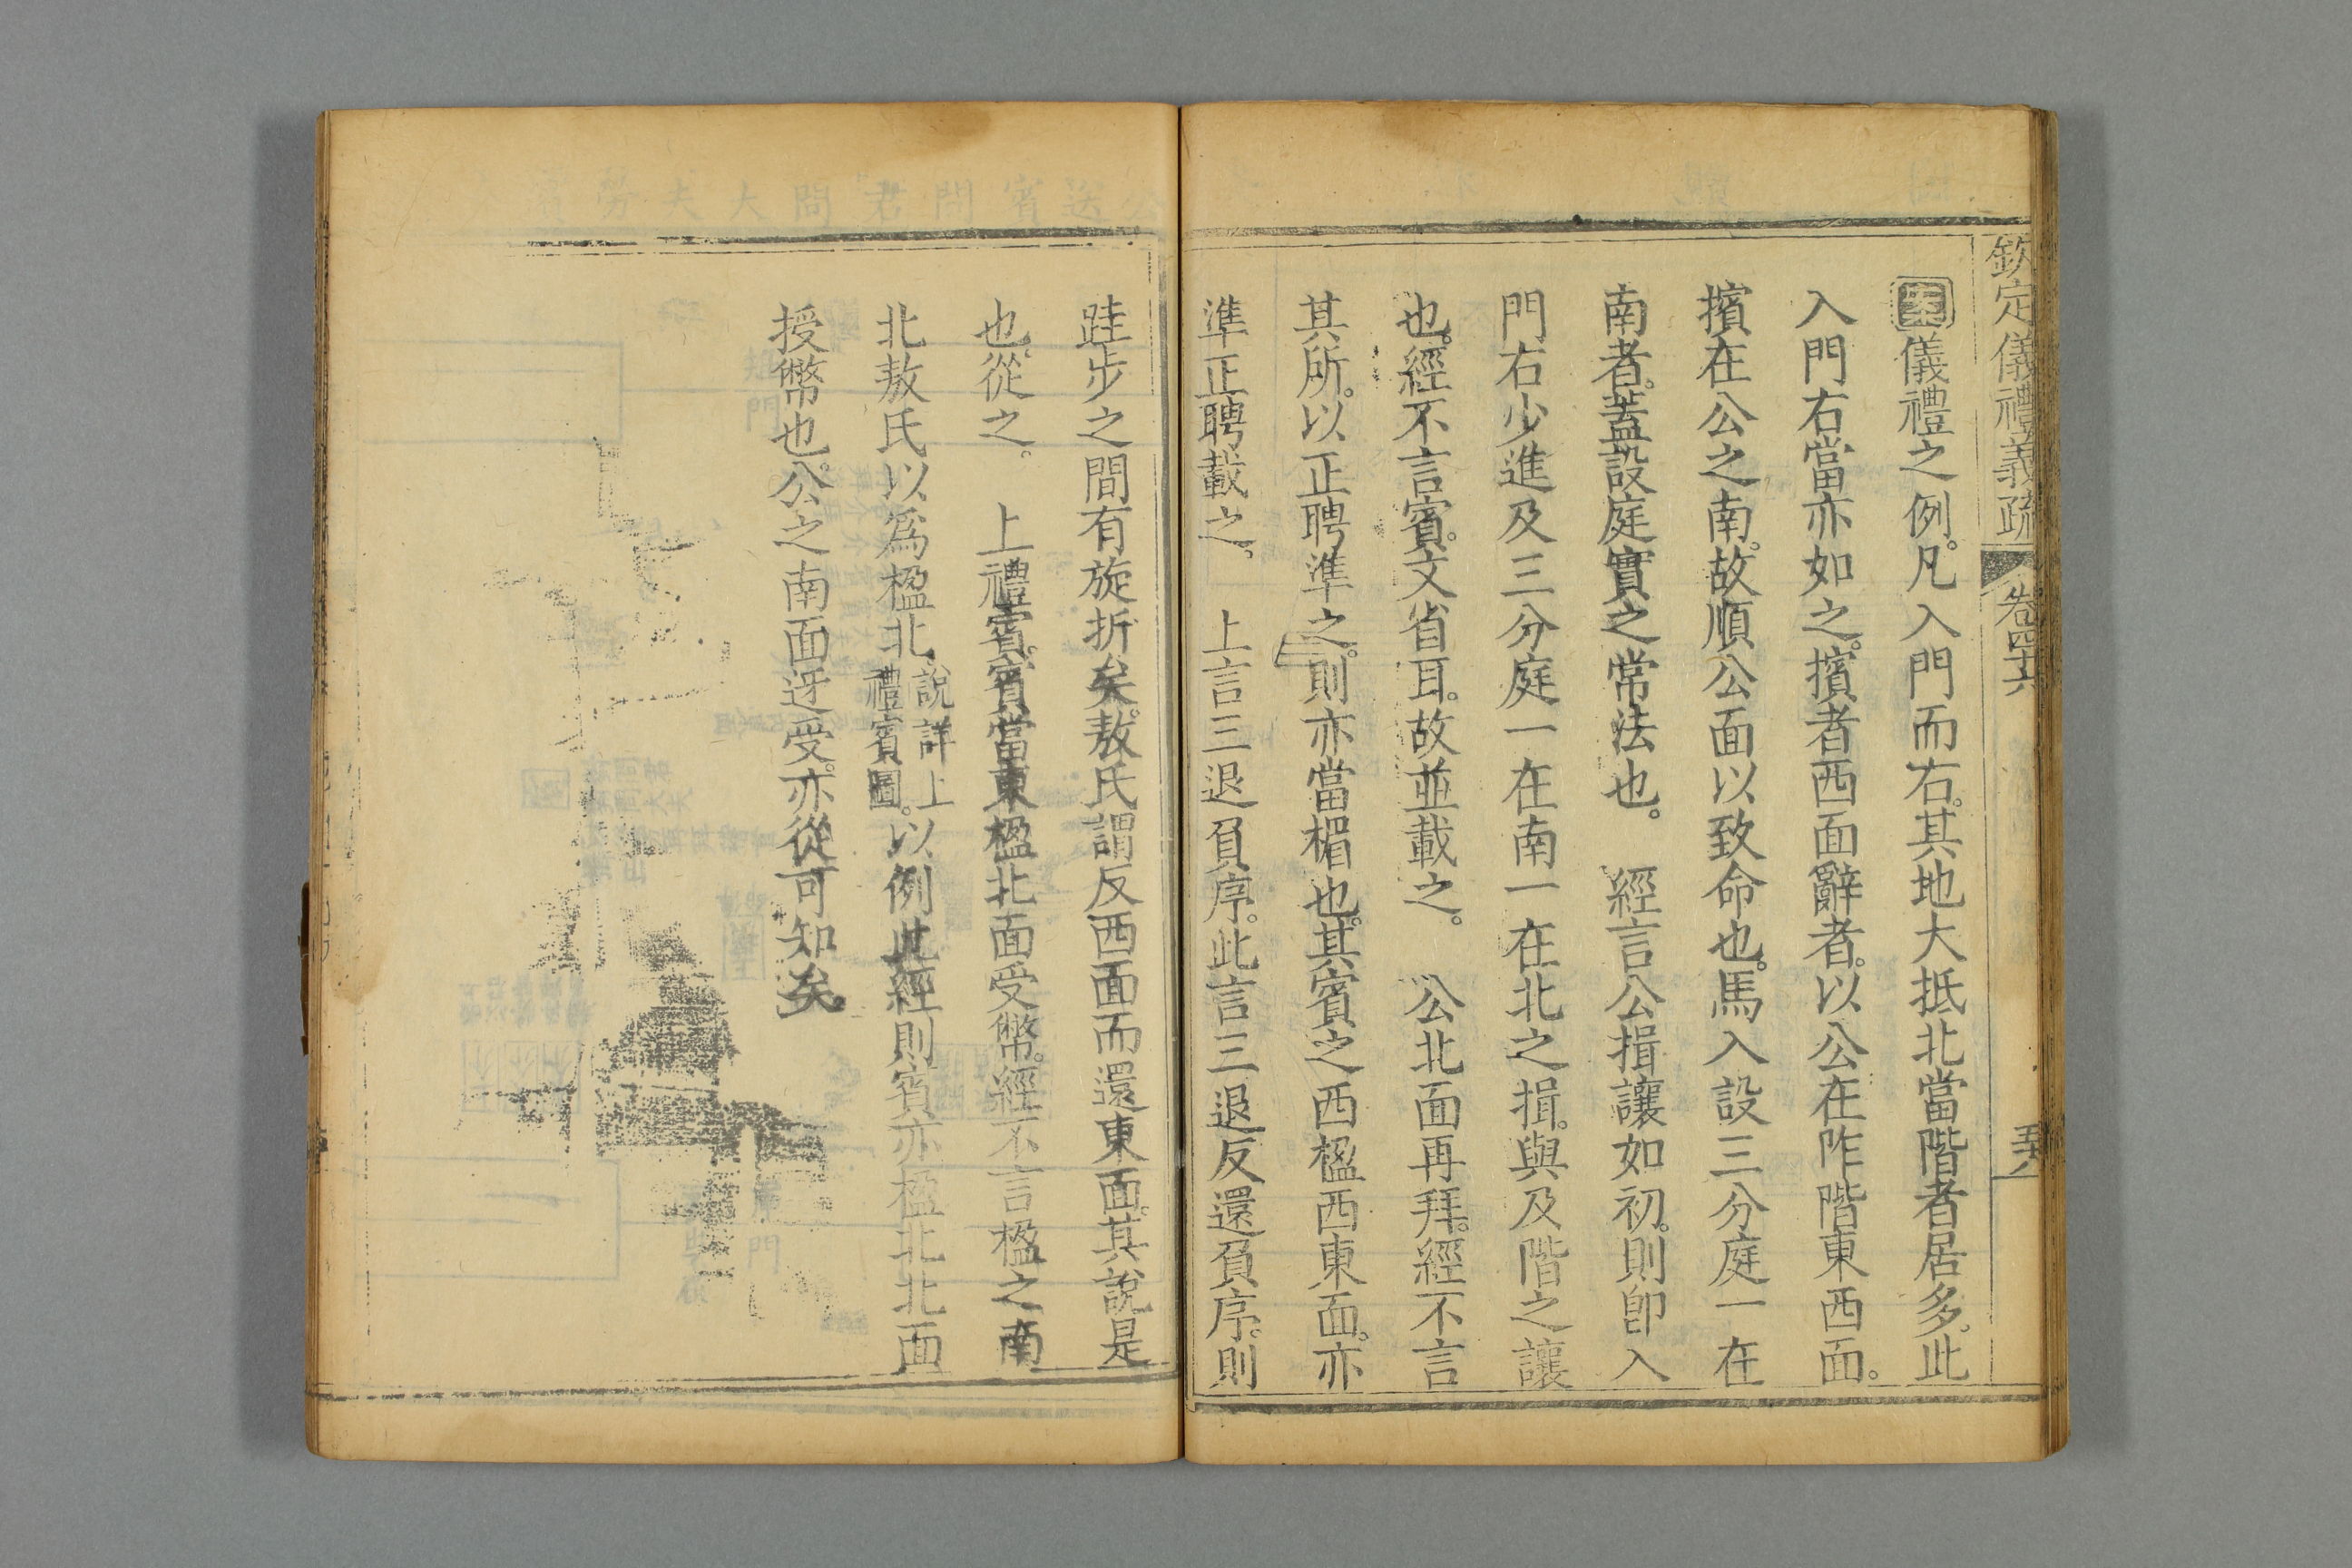 欽定儀禮義疏 卷四十六
案儀禮之例。凡入門而右。其地大抵北當階者居多。此
入門右當亦如之。擯者西面辭者。以公在阼階東西面。
擯在公之南。故順公面以致命也。馬入設三分庭一在
南者。蓋設庭實之常法也。 經言公揖讓如初。則卽入
門右少進及三分庭一在南一在北之揖。與及階之讓
也。經不言賓。文省耳。故並載之。 公北面再拜。經不言
其所。以正聘準之。則亦當楣也。其賓之西楹西東面。亦
準正聘載之。 上言三退負序。此言三退反還負序。則
跬步之間有旋折矣。敖氏謂反西面而還東面。其說是
也。從之。 上禮賓。賓當東楹北面受幣。經不言楹之南
北敖氏以爲楹北。說詳上禮賓圖。以例此經則賓亦楹北北面
授幣也。公之南面迓受。亦從可知矣。